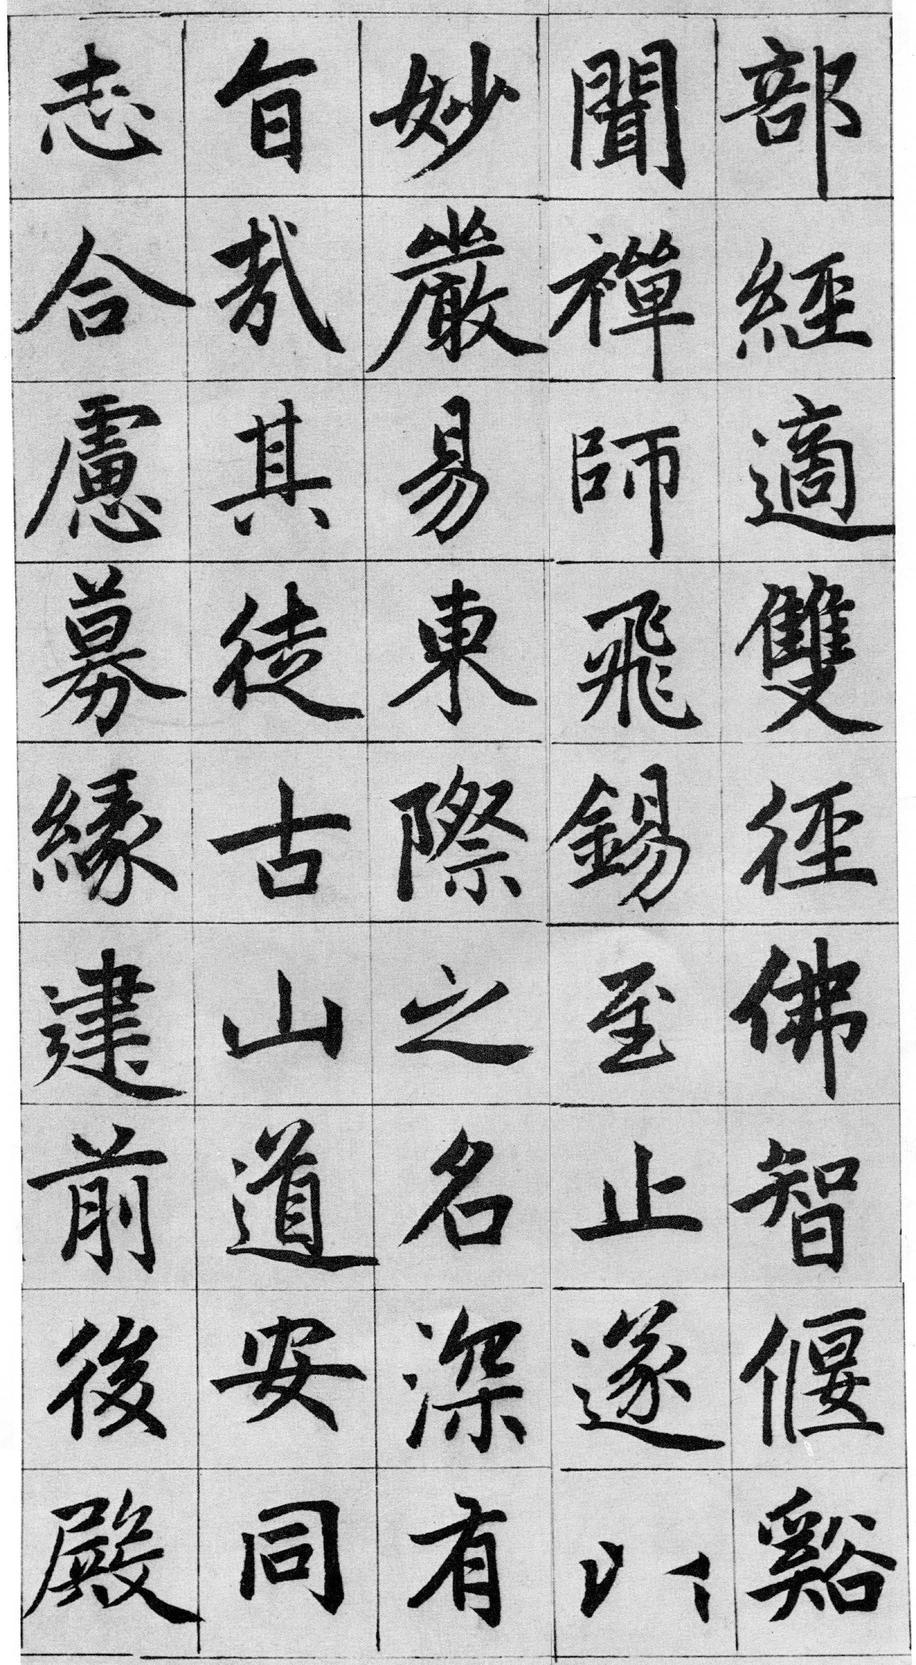 部經適雙徑佛智偃谿
聞禪師飛錫至止遂以
妙嚴易東際之名深有
旨哉其徒古山道安同
志合慮募緣建前後殿